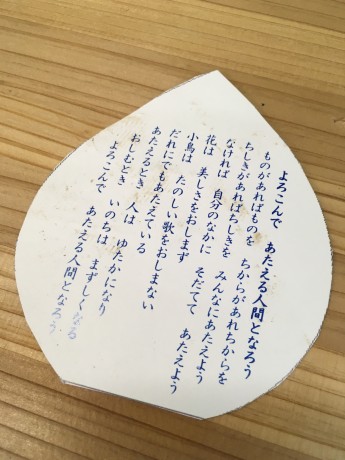 よろこんで　あたえる人間となろう
ものがあればものを　ちからがあれちからを
ちしきがあればちしきを　みんなにあたえよう
なければ　自分のなかに　そだてて　あたえよう
花は　美しさをおしまず
小鳥は　たのしい歌をおしまない
だれにでもあたえている
あたえるとき　人は　ゆたかになり
おしむとき　いのちは　まずしくなる
よろこんで　あたえる人間となろう